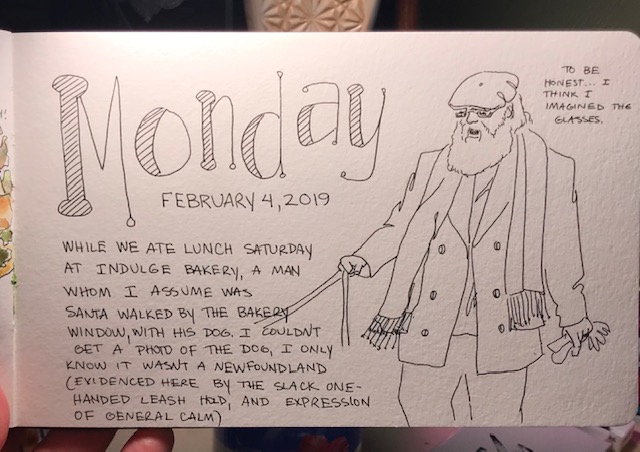 Monday
FEBRUARY 4, 2019
TO BE
HONEST... I
THINK I
IMAGINED THE
GLASSES.
WHILE WE ATE LUNCH SATURDAY
AT INDULGE BAKERY, A MAN
WHOM I ASSUME WAS
SANTA WALKED BY THE BAKERY
WINDOW, WITH HIS DOG. I COULDN'T
GET A PHOTO OF THE DOG, I ONLY
KNOW IT WASN'T A NEWFOUNDLAND
(EVIDENCED HERE BY THE SLACK ONE-
HANDED LEASH HOLD, AND EXPRESSION
OF GENERAL CALM)